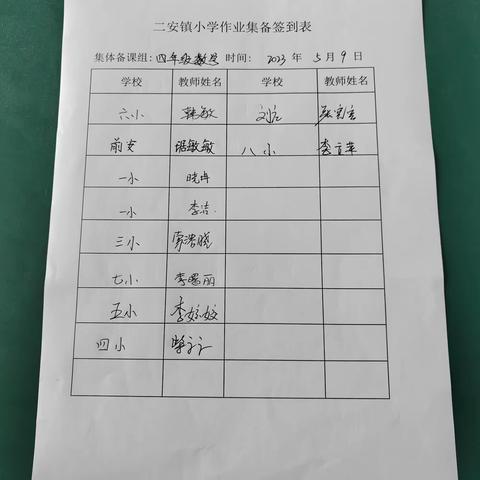 二安镇小学作业集备签到表
集体备课组：四年级数学 时间：2023 年 5 月 9 日
学校 教师姓名 学校 教师姓名
六小 韩敏 刘庄
前安 敏敏 八小
一小 晓卉
一小 李洁
三小 晓
七小 李丽
五小 李姣姣
四小